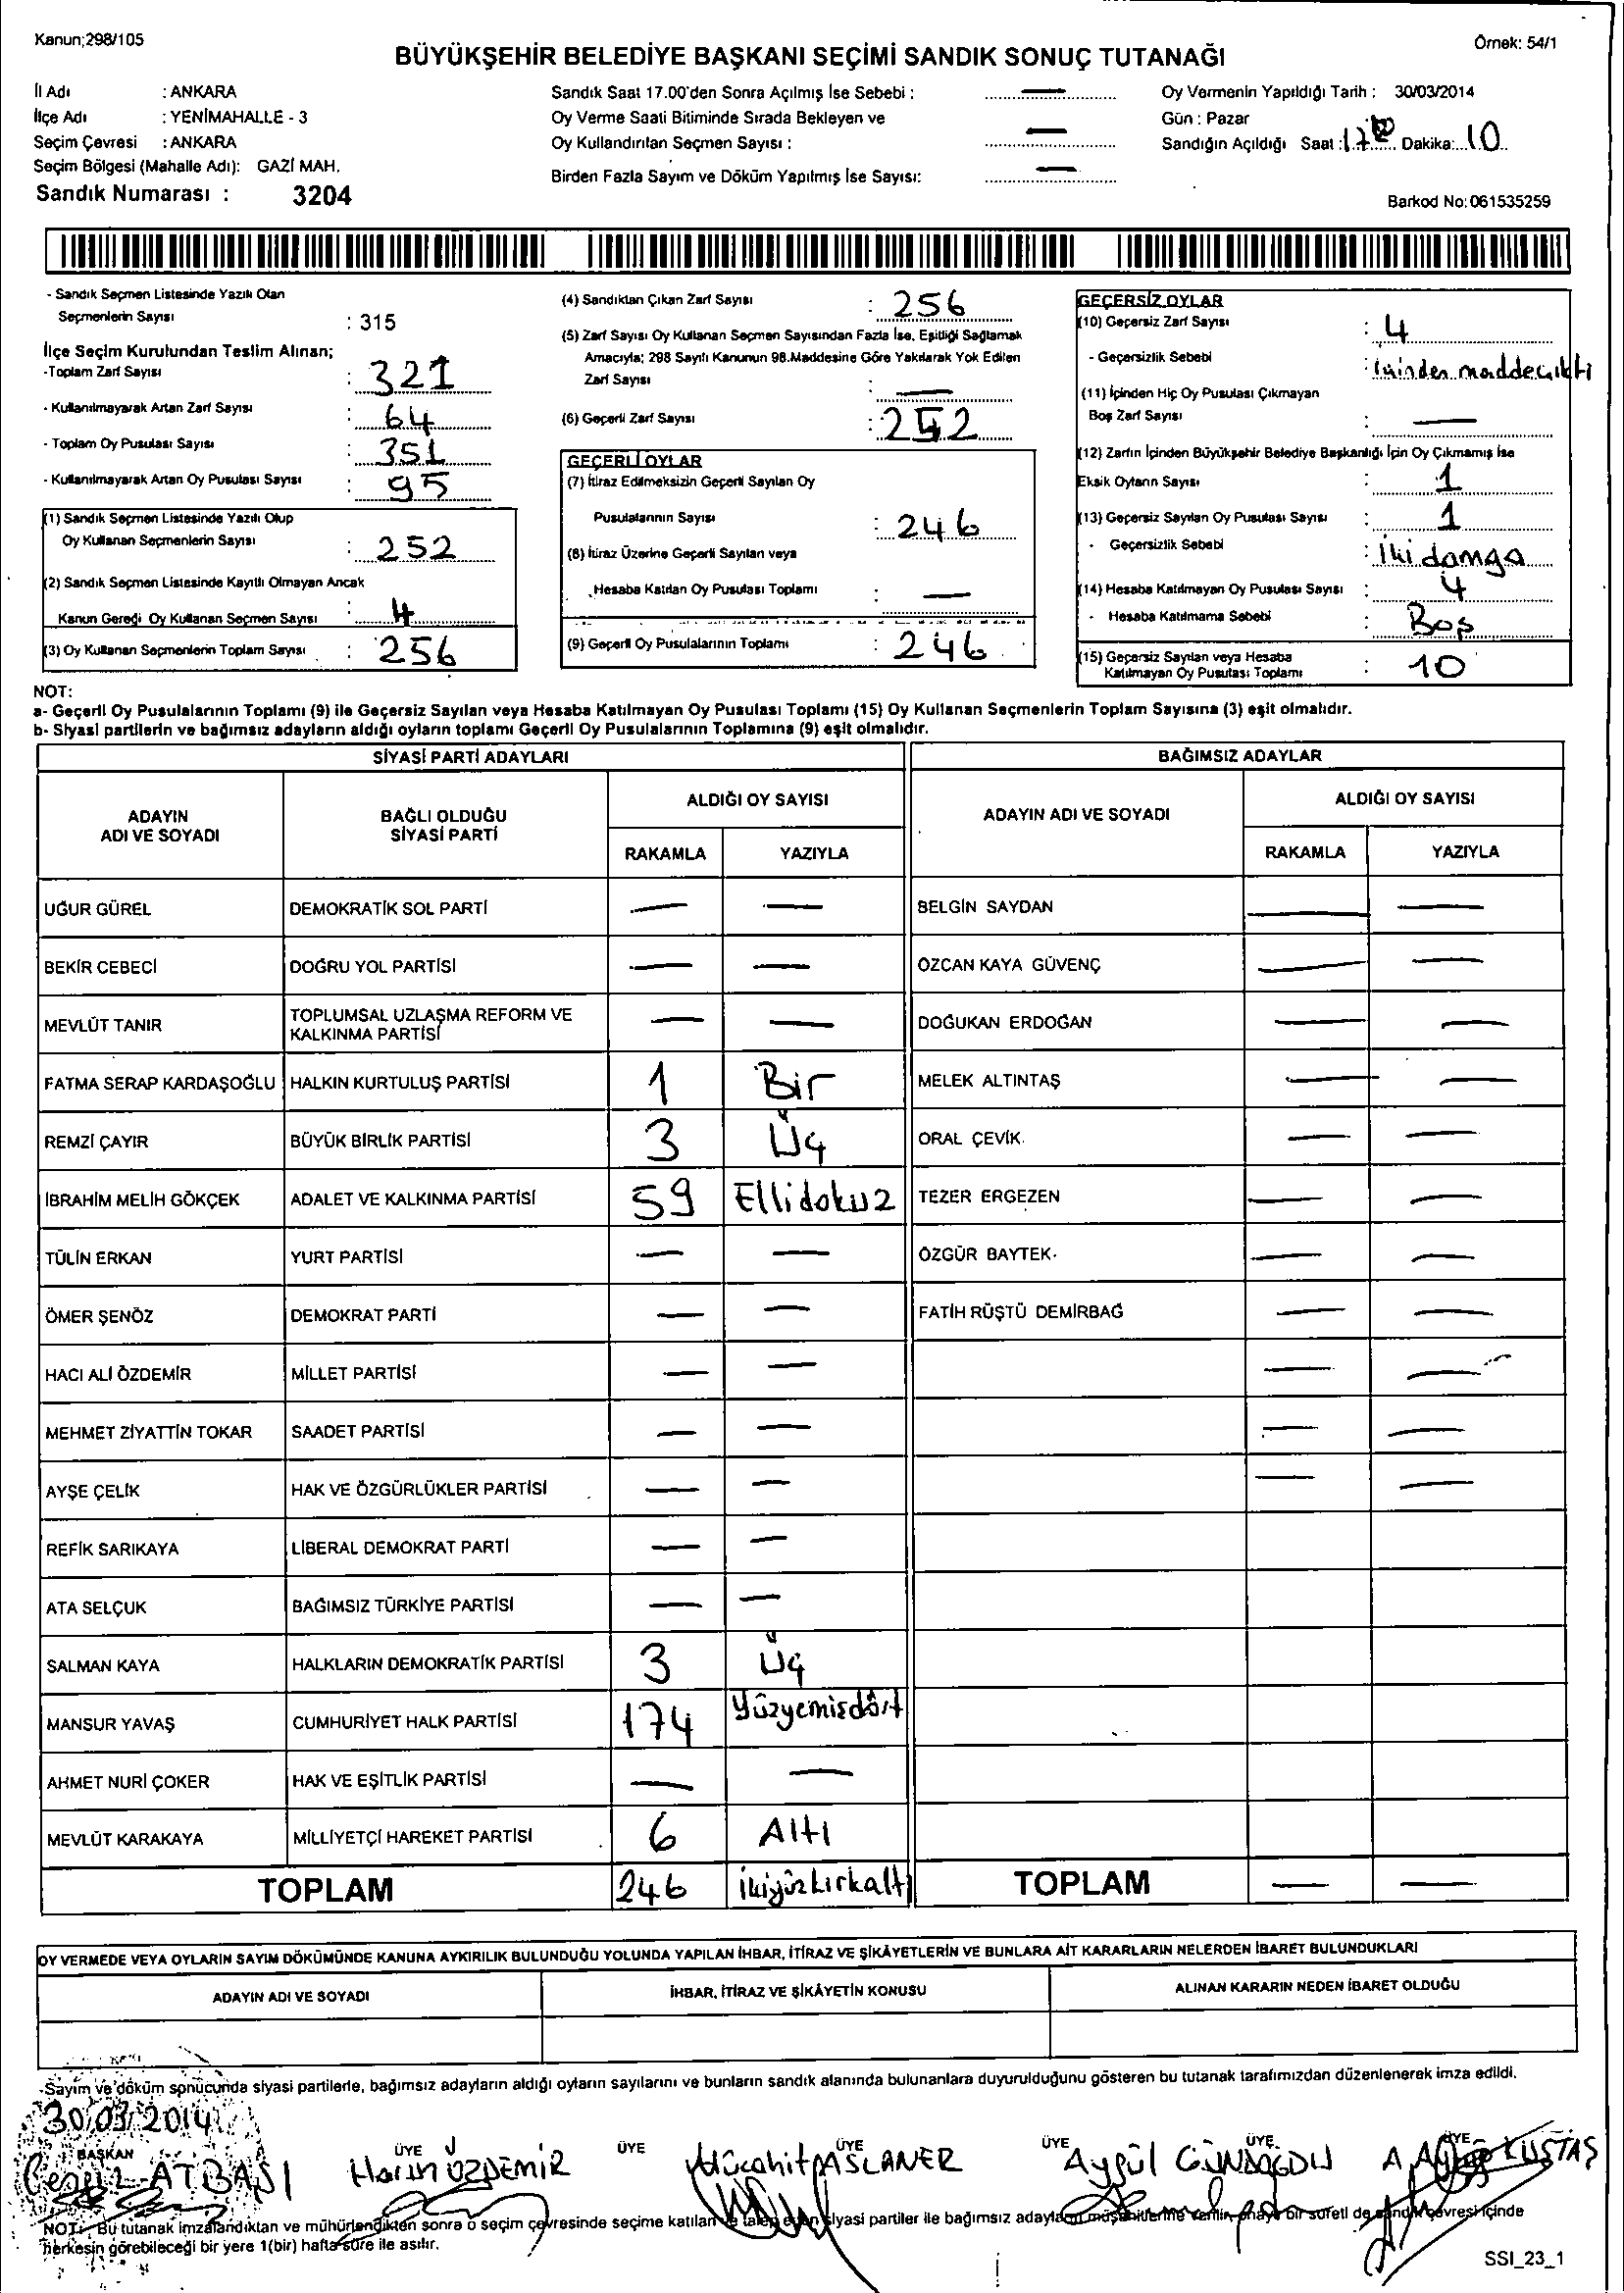 Kanun;298/105
Örnek: 54/1
BÜYÜKŞEHİR BELEDİYE BAŞKANI SEÇİMİ SANDIK SONUÇ TUTANAĞI
İl Adı : ANKARA
İlçe Adı : YENİMAHALLE - 3
Seçim Çevresi : ANKARA
Seçim Bölgesi (Mahalle Adı): GAZİ MAH.
Sandık Numarası : 3204
Sandık Saat 17.00'den Sonra Açılmış İse Sebebi : —
Oy Verme Saati Bitiminde Sırada Bekleyen ve
Oy Kullandırılan Seçmen Sayısı : —
Birden Fazla Sayım ve Döküm Yapılmış İse Sayısı: —
Oy Vermenin Yapıldığı Tarih : 30/03/2014
Gün : Pazar
Sandığın Açıldığı Saat : 17 Dakika: 10
Barkod No: 061535259
- Sandık Seçmen Listesinde Yazılı Olan
Seçmenlerin Sayısı : 315
İlçe Seçim Kurulundan Teslim Alınan;
-Toplam Zarf Sayısı : 321
- Kullanılmayarak Artan Zarf Sayısı : 64
- Toplam Oy Pusulası Sayısı : 351
- Kullanılmayarak Artan Oy Pusulası Sayısı : 95
(1) Sandık Seçmen Listesinde Yazılı Olup
Oy Kullanan Seçmenlerin Sayısı : 252
(2) Sandık Seçmen Listesinde Kayıtlı Olmayan Ancak
Kanun Gereği Oy Kullanan Seçmen Sayısı : 4
(3) Oy Kullanan Seçmenlerin Toplam Sayısı : 256
(4) Sandıktan Çıkan Zarf Sayısı : 256
(5) Zarf Sayısı Oy Kullanan Seçmen Sayısından Fazla İse, Eşitliği Sağlamak
Amacıyla; 298 Sayılı Kanunun 98.Maddesine Göre Yakılarak Yok Edilen
Zarf Sayısı : —
(6) Geçerli Zarf Sayısı : 252
GEÇERLİ OYLAR
(7) İtiraz Edilmeksizin Geçerli Sayılan Oy
Pusulalarının Sayısı : 246
(8) İtiraz Üzerine Geçerli Sayılan veya
Hesaba Katılan Oy Pusulası Toplamı : —
(9) Geçerli Oy Pusulalarının Toplamı : 246
GEÇERSİZ OYLAR
(10) Geçersiz Zarf Sayısı : 4
- Geçersizlik Sebebi : İçinden madde çıktı
(11) İçinden Hiç Oy Pusulası Çıkmayan
Boş Zarf Sayısı : —
(12) Zarfın İçinden Büyükşehir Belediye Başkanlığı İçin Oy Çıkmamış İse
Eksik Oyların Sayısı : 1
(13) Geçersiz Sayılan Oy Pusulası Sayısı : 1
- Geçersizlik Sebebi : İki damga
(14) Hesaba Katılmayan Oy Pusulası Sayısı : 4
- Hesaba Katılmama Sebebi : Boş
(15) Geçersiz Sayılan veya Hesaba
Katılmayan Oy Pusulası Toplamı : 10
NOT:
a- Geçerli Oy Pusulalarının Toplamı (9) ile Geçersiz Sayılan veya Hesaba Katılmayan Oy Pusulası Toplamı (15) Oy Kullanan Seçmenlerin Toplam Sayısına (3) eşit olmalıdır.
b- Siyasi partilerin ve bağımsız adayların aldığı oyların toplamı Geçerli Oy Pusulalarının Toplamına (9) eşit olmalıdır.
SİYASİ PARTİ ADAYLARI BAĞIMSIZ ADAYLAR
ADAYIN ADI VE SOYADI BAĞLI OLDUĞU SİYASİ PARTİ ALDIĞI OY SAYISI RAKAMLA YAZIYLA ADAYIN ADI VE SOYADI ALDIĞI OY SAYISI RAKAMLA YAZIYLA
UĞUR GÜREL DEMOKRATİK SOL PARTİ — — BELGİN SAYDAN — —
BEKİR CEBECİ DOĞRU YOL PARTİSİ — — ÖZCAN KAYA GÜVENÇ — —
MEVLÜT TANIR TOPLUMSAL UZLAŞMA REFORM VE KALKINMA PARTİSİ — — DOĞUKAN ERDOĞAN — —
FATMA SERAP KARDAŞOĞLU HALKIN KURTULUŞ PARTİSİ 1 Bir MELEK ALTINTAŞ — —
REMZİ ÇAYIR BÜYÜK BİRLİK PARTİSİ 3 Üç ORAL ÇEVİK — —
İBRAHİM MELİH GÖKÇEK ADALET VE KALKINMA PARTİSİ 59 Ellidokuz TEZER ERGEZEN — —
TÜLİN ERKAN YURT PARTİSİ — — ÖZGÜR BAYTEK — —
ÖMER ŞENÖZ DEMOKRAT PARTİ — — FATİH RÜŞTÜ DEMİRBAĞ — —
HACI ALİ ÖZDEMİR MİLLET PARTİSİ — — — —
MEHMET ZİYATTİN TOKAR SAADET PARTİSİ — — — —
AYŞE ÇELİK HAK VE ÖZGÜRLÜKLER PARTİSİ — — — —
REFİK SARIKAYA LİBERAL DEMOKRAT PARTİ — —
ATA SELÇUK BAĞIMSIZ TÜRKİYE PARTİSİ — —
SALMAN KAYA HALKLARIN DEMOKRATİK PARTİSİ 3 Üç
MANSUR YAVAŞ CUMHURİYET HALK PARTİSİ 174 Yüzyemişdört
AHMET NURİ ÇOKER HAK VE EŞİTLİK PARTİSİ — —
MEVLÜT KARAKAYA MİLLİYETÇİ HAREKET PARTİSİ 6 Altı
TOPLAM 246 İkiyüzkırkaltı TOPLAM — —
OY VERMEDE VEYA OYLARIN SAYIM DÖKÜMÜNDE KANUNA AYKIRILIK BULUNDUĞU YOLUNDA YAPILAN İHBAR, İTİRAZ VE ŞİKÂYETLERİN VE BUNLARA AİT KARARLARIN NELERDEN İBARET BULUNDUKLARI
ADAYIN ADI VE SOYADI İHBAR, İTİRAZ VE ŞİKÂYETİN KONUSU ALINAN KARARIN NEDEN İBARET OLDUĞU
Sayım ve döküm sonucunda siyasi partilerle, bağımsız adayların aldığı oyların sayılarını ve bunların sandık alanında bulunanlara duyurulduğunu gösteren bu tutanak tarafımızdan düzenlenerek imza edildi.
30/03/2014
BAŞKAN ÜYE ÜYE ÜYE ÜYE ÜYE ÜYE
ATBAŞI Harun ÖZDEMİR Mücahit ASLANER Aygül GÜNDOĞDU KUŞTAŞ
NOT: Bu tutanak imzalandıktan ve mühürlendikten sonra o seçim çevresinde seçime katılan ve talep eden siyasi partiler ile bağımsız adayların müşahitlerine verilir, onaylı bir sureti de sandık çevresi içinde
herkesin görebileceği bir yere 1(bir) hafta süre ile asılır.
SSI_23_1